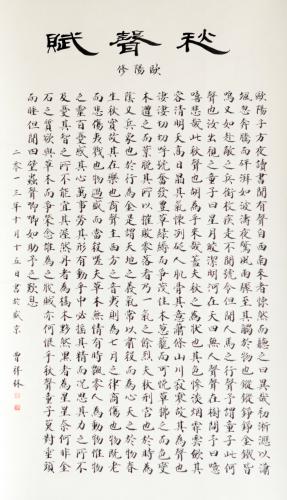 秌聲賦
歐陽修
歐陽子方夜讀書聞有聲自西南來者悚然而聽之曰異哉初淅瀝以瀟
颯忽奔騰而砰湃如波濤夜驚風雨驟至其觸於物也鏦鏦錚錚金鐵皆
鳴又如赴敵之兵銜枚疾走不聞號令但聞人馬之行聲予謂童子此何
聲也汝出視之童子曰星月皎潔明河在天四無人聲聲在樹間予曰噫
嘻悲哉此秋聲也胡為乎來哉蓋夫秋之為狀也其色慘淡煙霏雲斂其
容清明天高日晶其氣慄冽砭人肌骨其意蕭條山川寂寥故其為聲也
淒淒切切呼號奮發豐草綠縟而爭茂佳木蔥蘢而可悅草拂之而色變
木遭之而葉脫其所以摧敗零落者乃一氣之餘烈夫秋刑官也於時為
陰又兵象也於行為金是謂天地之義氣常以肅殺而為心天之於物春
生秋實故其在樂也商聲主西方之音夷則為七月之律商傷也物既老
而悲傷夷戮也物過盛而當殺嗟夫草木無情有時飄零人為動物惟物
之靈百憂感其心萬事勞其形有動乎中必搖其精而況思其力之所不
及憂其智之所不能宜其渥然丹者為槁木黟然黑者為星星奈何非金
石之質欲與草木而爭榮念誰為之戕賊亦何恨乎秋聲童子莫對垂頭
而睡但聞四壁蟲聲唧唧如助予之歎息
二零一三年十月十五日書於盛京